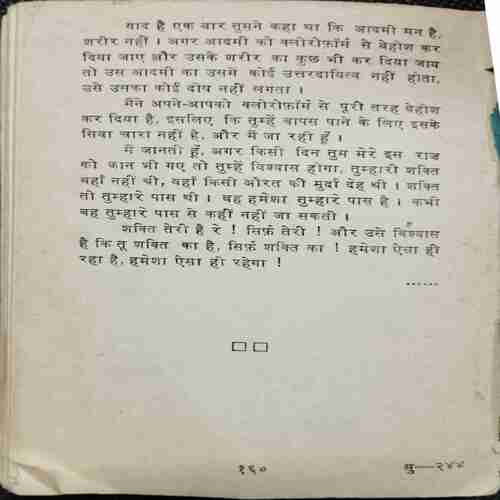 याद है एक बार तुमने कहा था कि आदमी मन है,
शरीर नहीं । अगर आदमी को क्लोरोफ़ॉर्म से बेहोश कर
दिया जाए और उसके शरीर का कुछ भी कर दिया जाय
तो उस आदमी का उसमें कोई उत्तरदायित्व नहीं होता,
उसे उसका कोई दोष नहीं लगता ।
मैंने अपने-आपको क्लोरोफ़ॉर्म से पूरी तरह बेहोश
कर दिया है, इसलिए कि तुम्हें वापस पाने के लिए इसके
सिवा चारा नहीं है, और मैं जा रही हूँ ।
मैं जानती हूँ, अगर किसी दिन तुम मेरे इस राज़
को जान भी गए तो तुम्हें विश्वास होगा, तुम्हारी शक्ति
वहाँ नहीं थी, वहाँ किसी औरत की मुर्दा देह थी । शक्ति
तो तुम्हारे पास थी । वह हमेशा तुम्हारे पास है । कभी
वह तुम्हारे पास से कहीं नहीं जा सकती ।
शक्ति तेरी है रे ! सिर्फ़ तेरी ! और उसे विश्वास
है कि तू शक्ति का है, सिर्फ़ शक्ति का ! हमेशा ऐसा ही
रहा है, हमेशा ऐसा ही रहेगा !
......
१६० यु—२४४